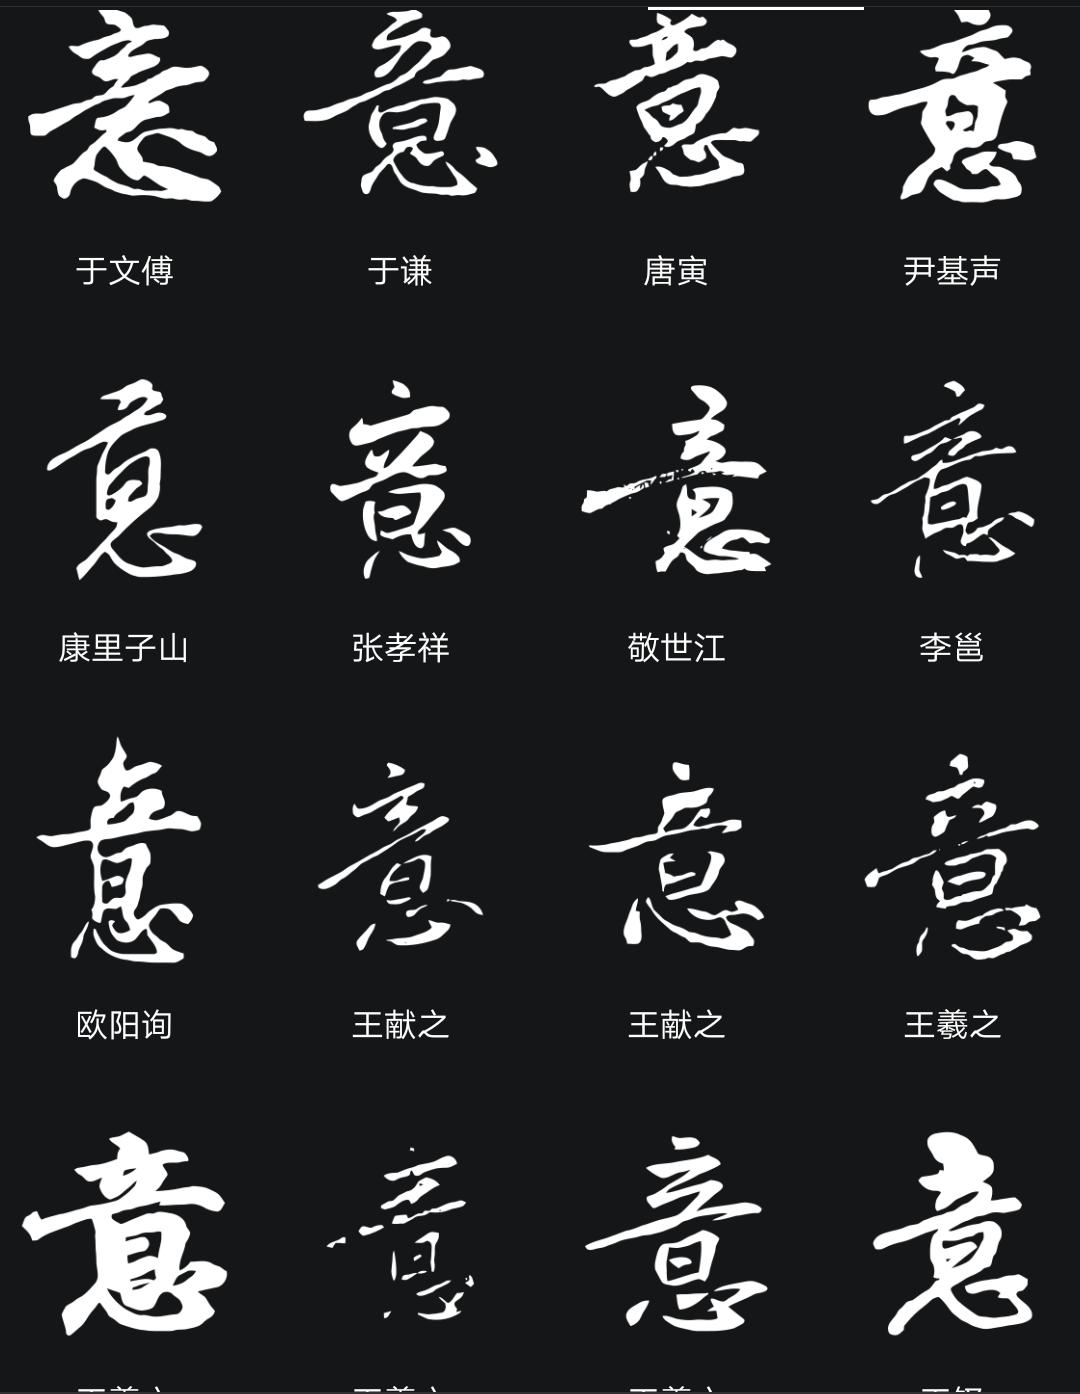 意 意 意 意
于文傅 于谦 唐寅 尹基声
意 意 意 意
康里子山 张孝祥 敬世江 李邕
意 意 意 意
欧阳询 王献之 王献之 王羲之
意 意 意 意